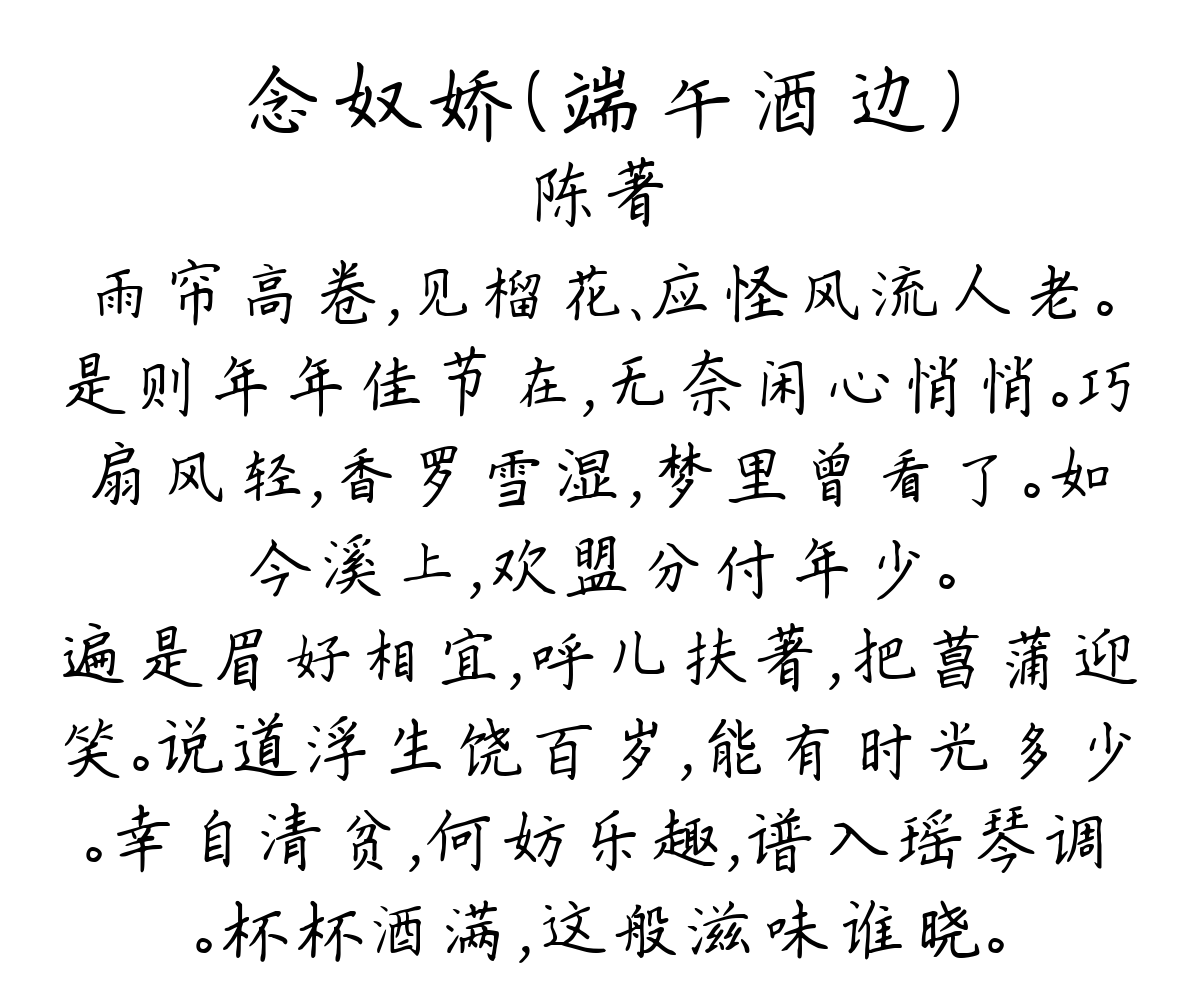 念奴娇(端午酒边)
陈著
雨帘高卷,见榴花、应怪风流人老。
是则年年佳节在,无奈闲心悄悄。巧
扇风轻,香罗雪湿,梦里曾看了。如
今溪上,欢盟分付年少。
遍是眉好相宜,呼儿扶著,把菖蒲迎
笑。说道浮生饶百岁,能有时光多少
。幸自清贫,何妨乐趣,谱入瑶琴调
。杯杯酒满,这般滋味谁晓。